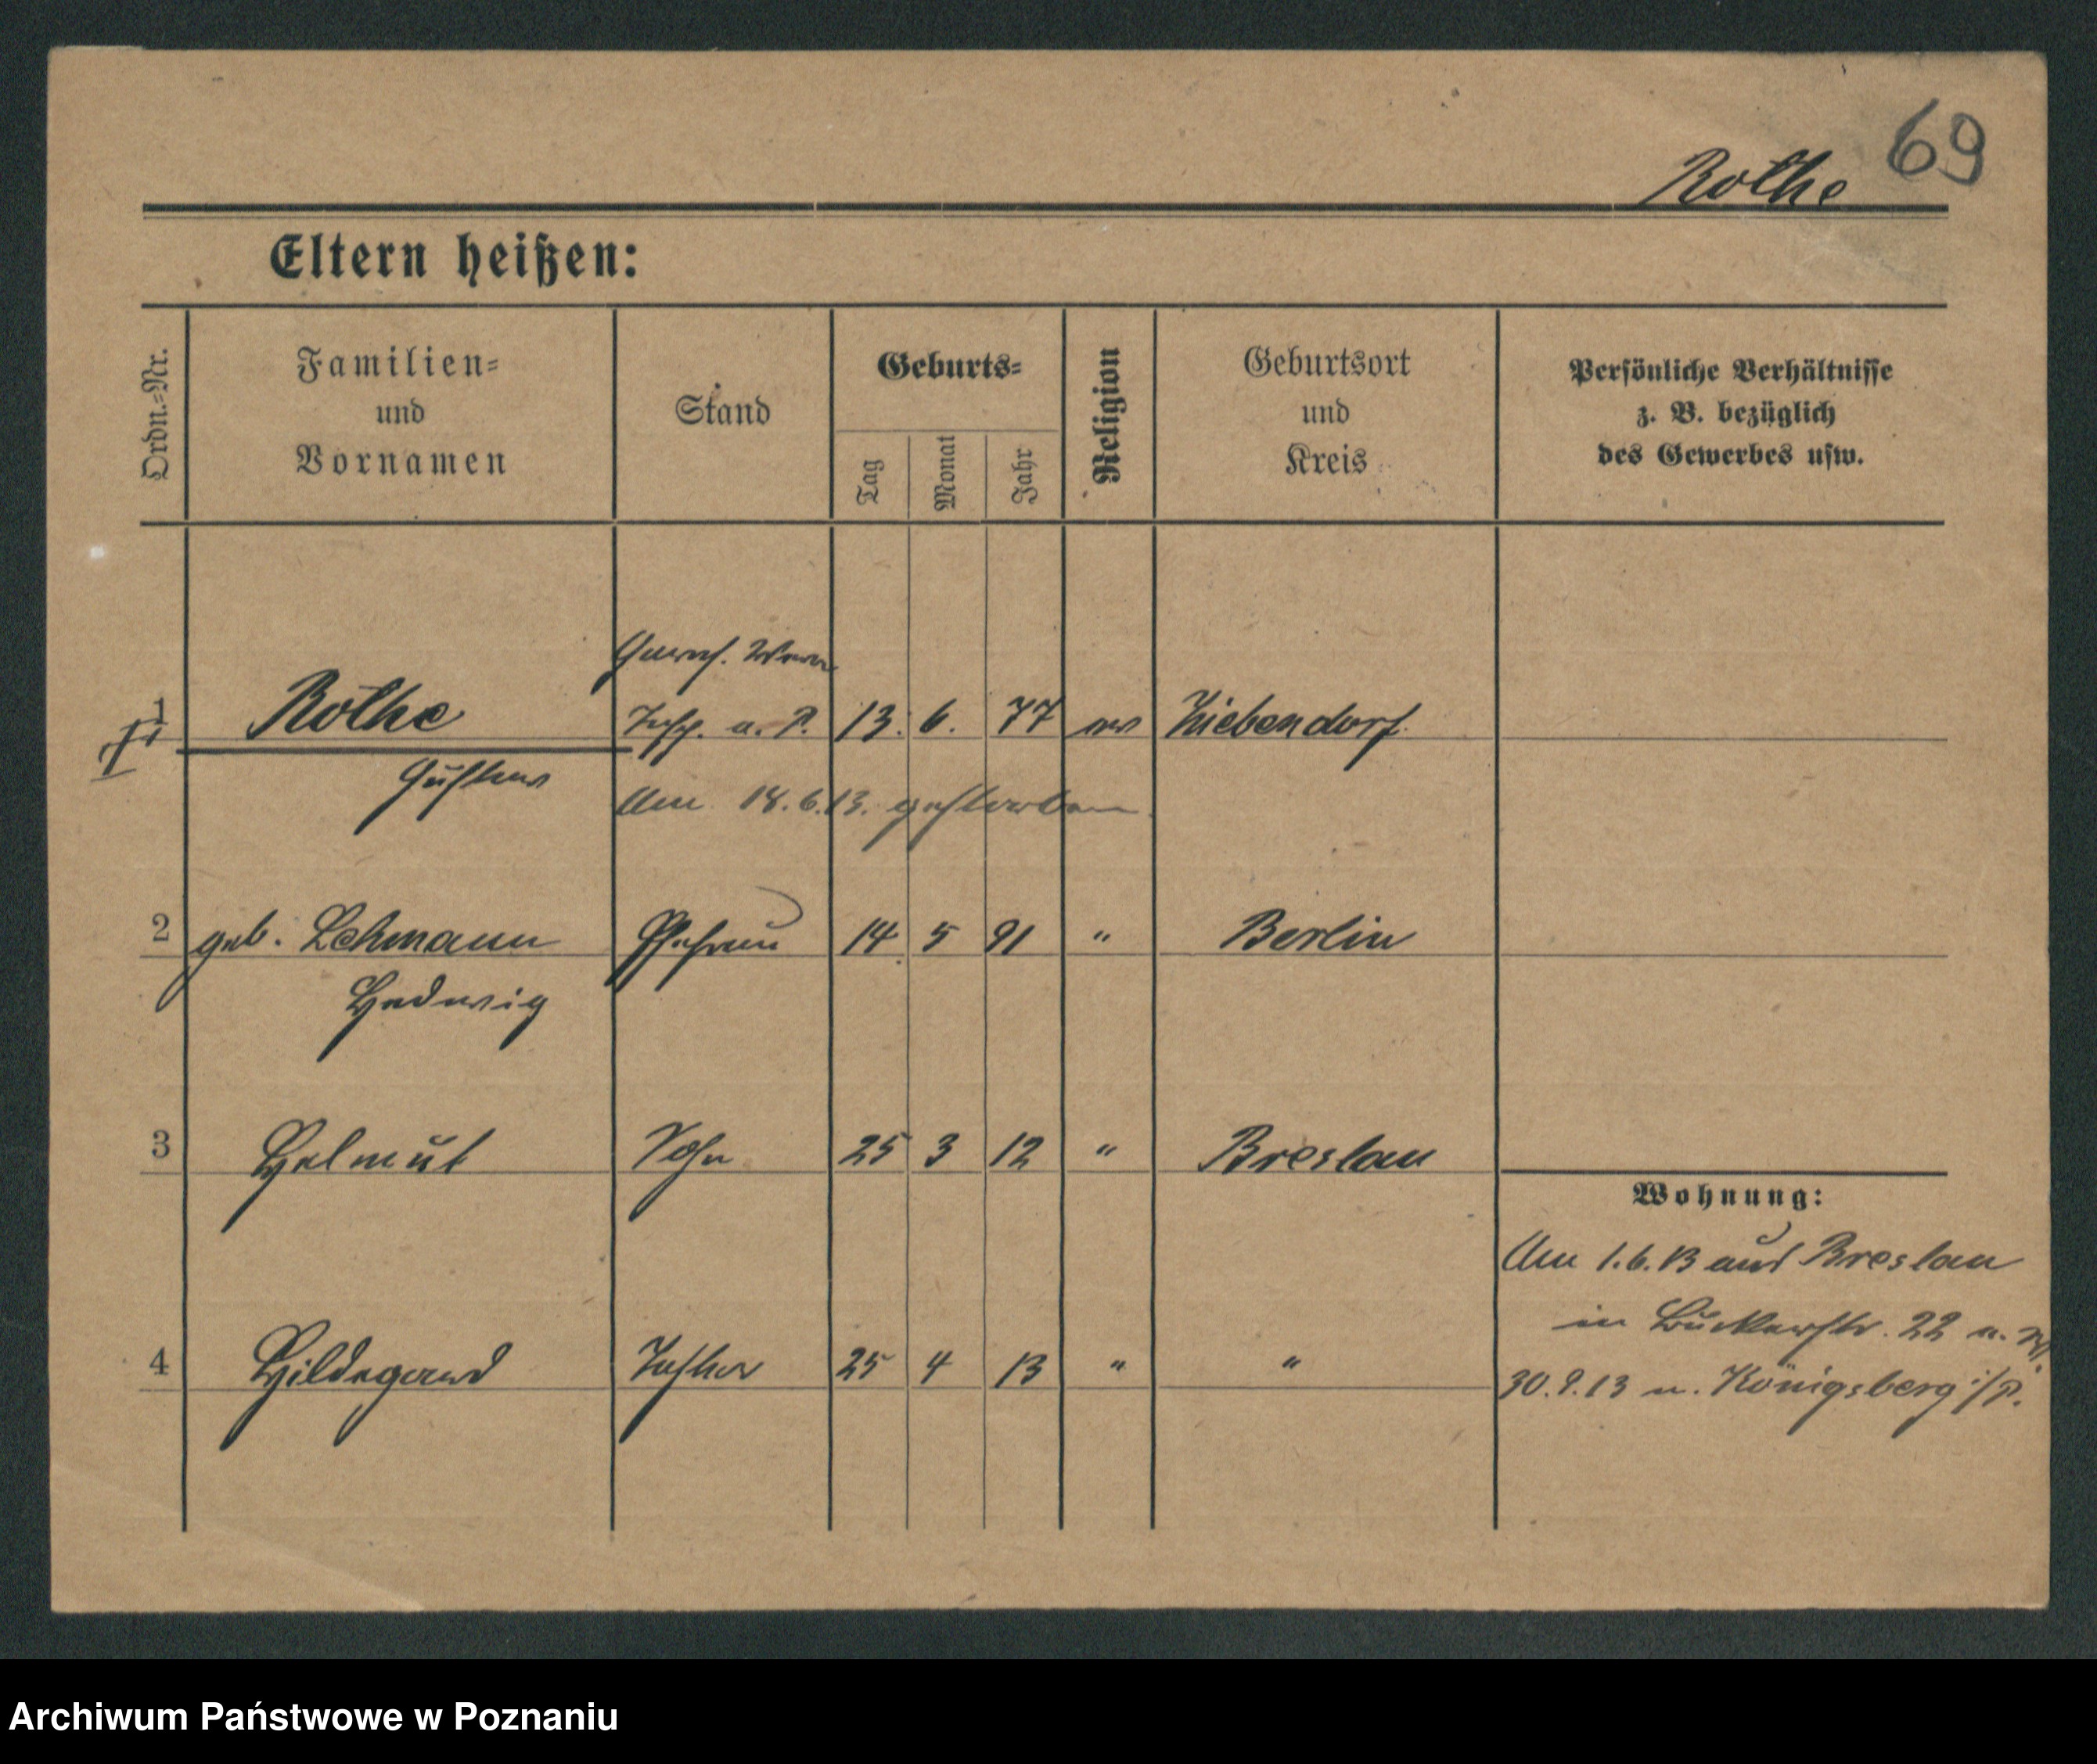 69
Rothe
Eltern heißen:
Ordn.=Nr.
Familien=
und
Vornamen
Stand
Geburts=
Tag
Monat
Jahr
Religion
Geburtsort
und
Kreis
Persönliche Verhältnisse
z. B. bezüglich
des Gewerbes usw.
1 Rothe Insp. a. P. 13. 6. 77 ev Ziebendorf
Gustav
Am 18.6.13. gestorben
2 geb. Lehmann Ehefrau 14. 5 91 " Berlin
Hedwig
3 Helmut Sohn 25 3 12 " Breslau
Wohnung:
Am 1.6.13 aus Breslau
in 22
4 Hildegard Tochter 25 4 13 " "
30.9.13 n. Königsberg i/P.
Archiwum Państwowe w Poznaniu